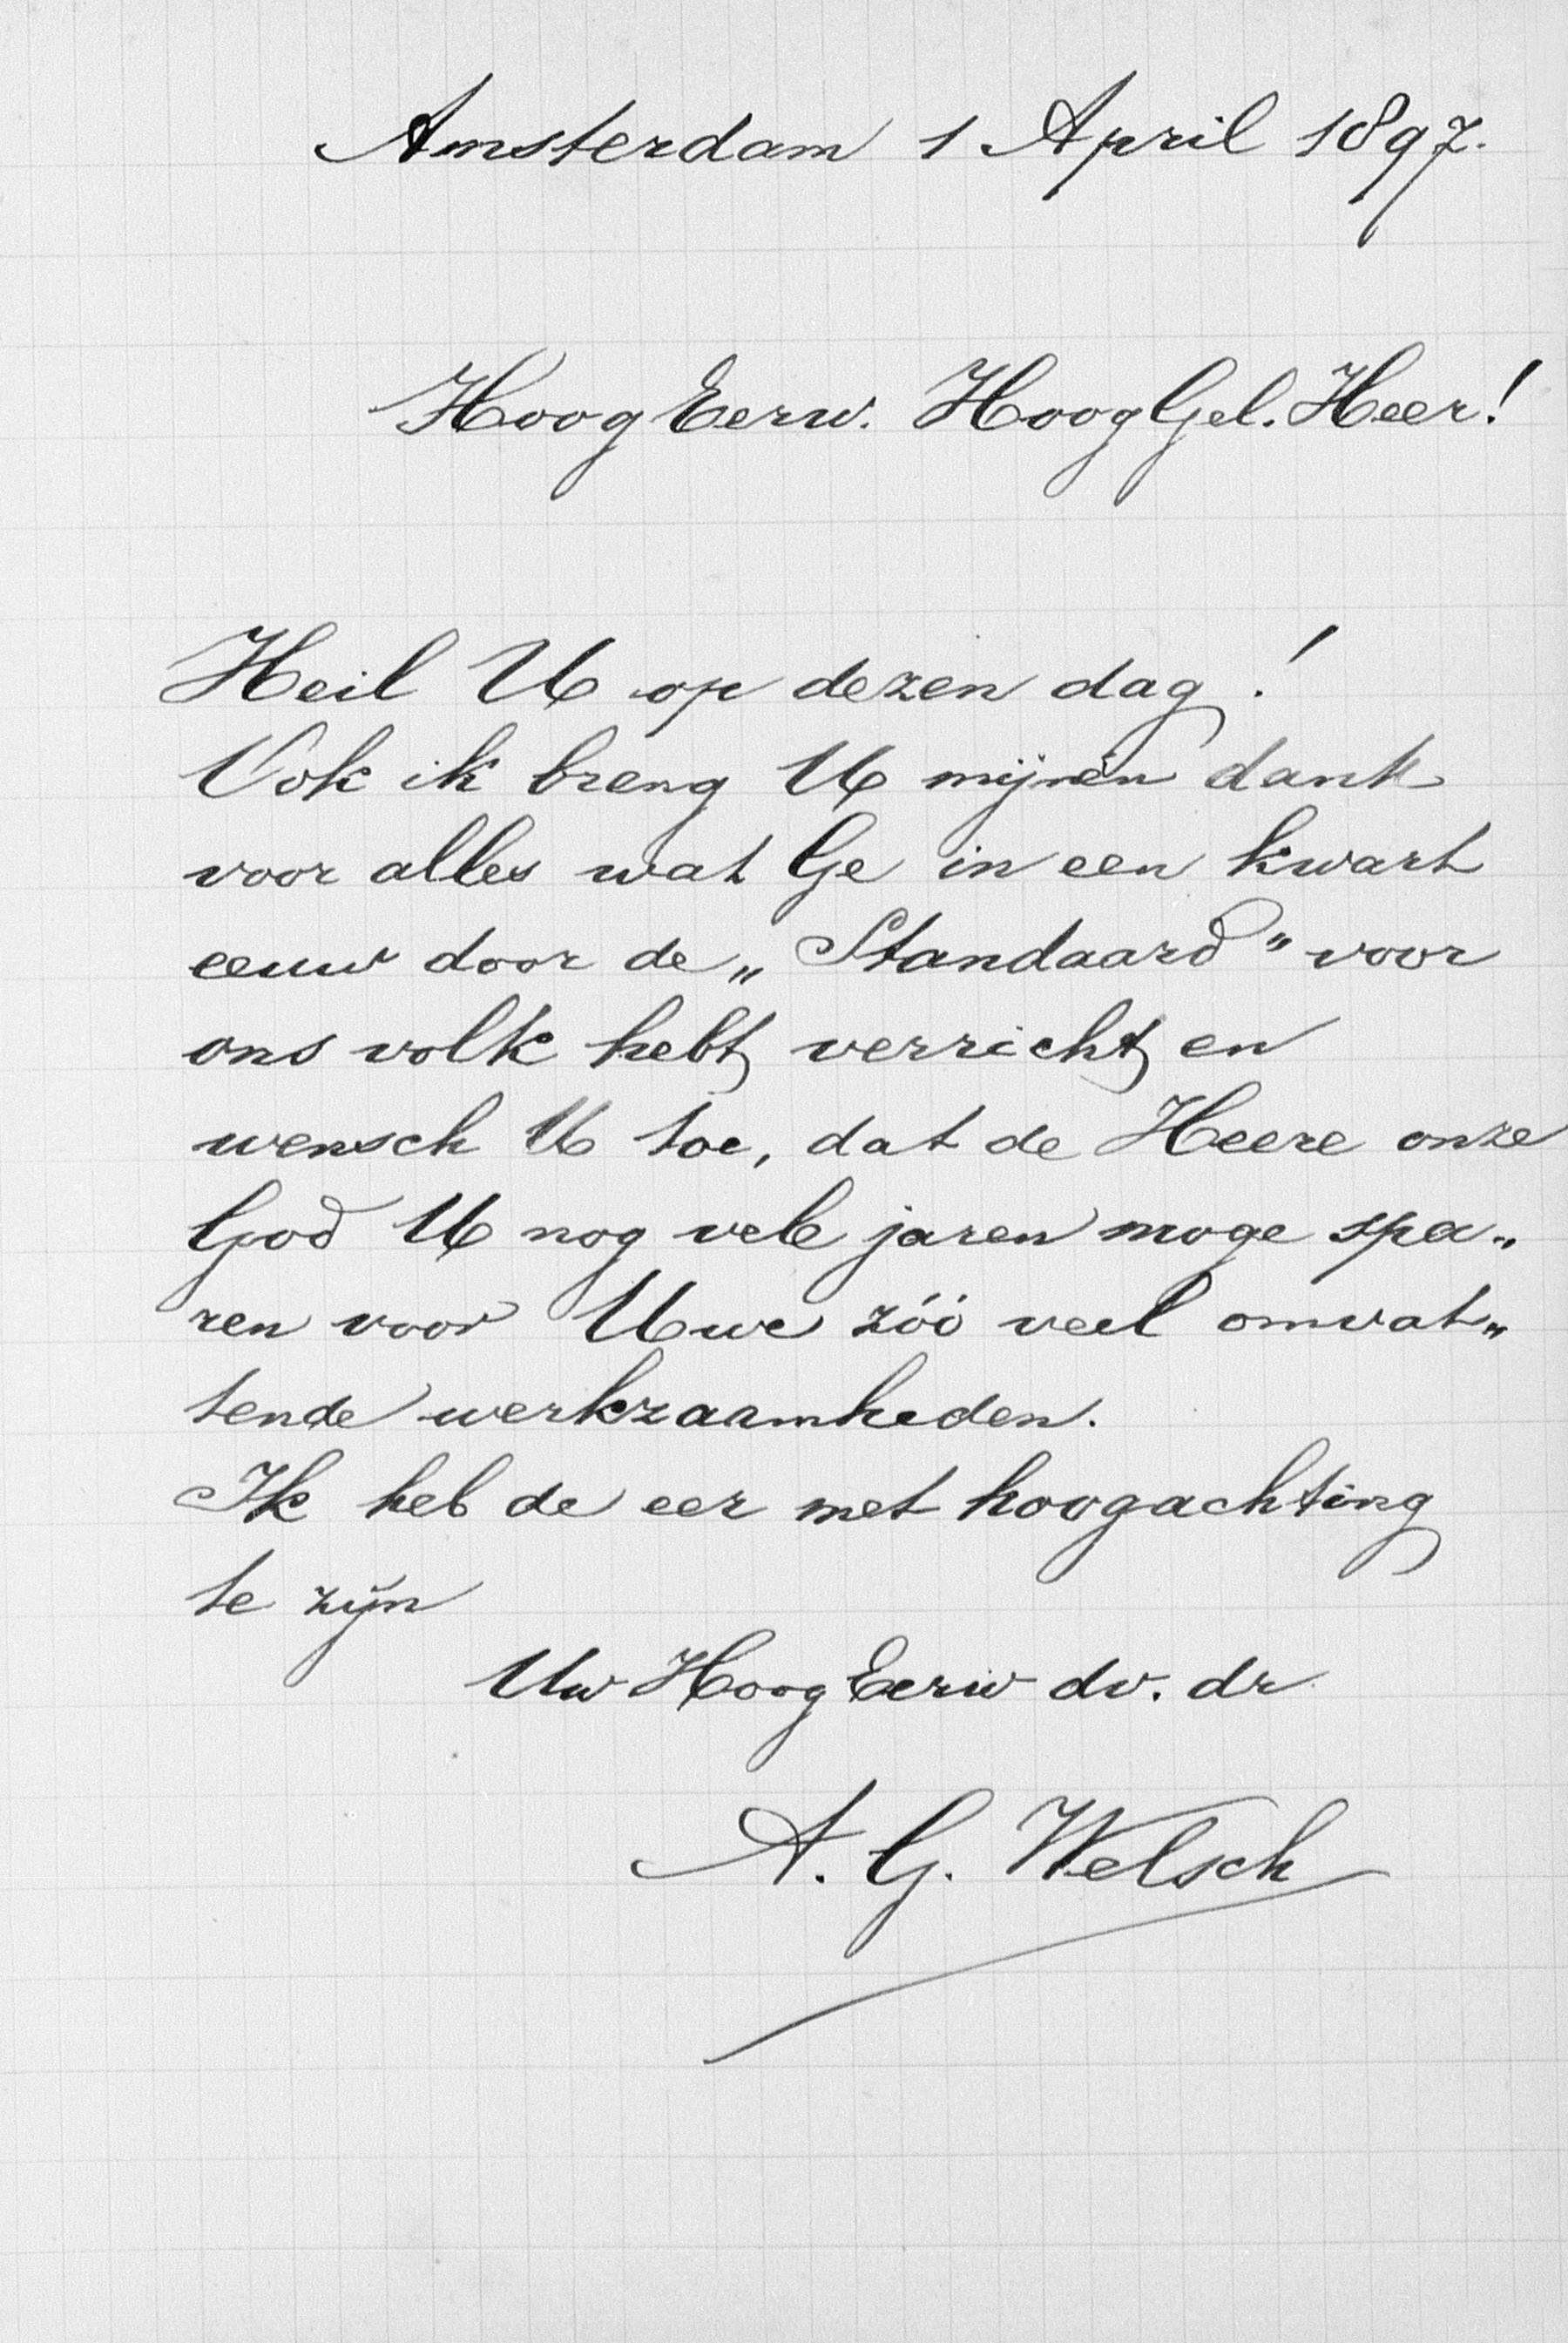 Amsterdam 1 April 1897.
HoogEerw. HoogGel. Heer!
Heil U op dezen dag!
Ook ik breng U mijnen dank
voor alles wat Ge in een kwart
eeuw door de „Standaard" voor
ons volk hebt verricht en
wensch U toe, dat de Heere onze
God U nog vele jaren moge spa„
ren voor Uwe zóó veel omvat„
tende werkzaamheden.
Ik heb de eer met hoogachting
te zijn
Uw HoogEerw dv. dr
A. G. Welsch